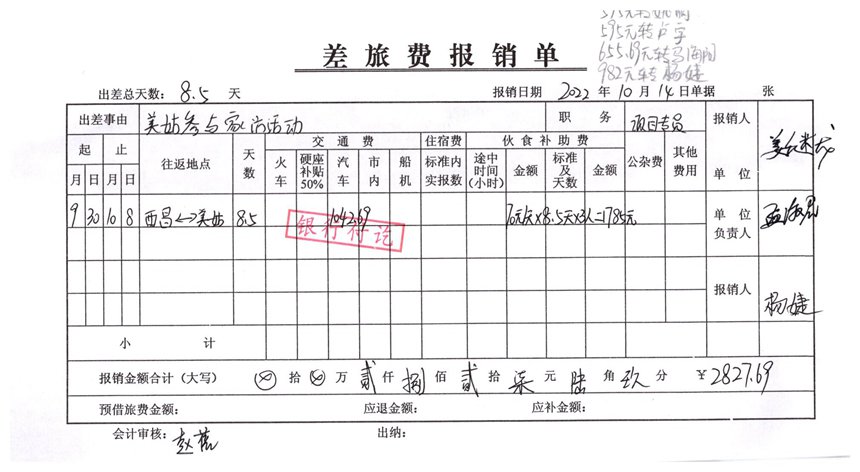 595元转
595元转卢字
655.69元转马海
982元转杨婕
差旅费报销单
出差总天数: 8.5 天 报销日期 2022 年 10 月 14 日单据 张
出差事由 美姑参与 活动 职务 项目专员 报销人
起 止 往返地点 天数 交通费 住宿费 伙食补助费 公杂费 其他费用 单位
月 日 月 日 火车 硬座补贴50% 汽车 市内 船机 标准内实报数 途中时间(小时) 金额 标准及天数 金额
9 30 10 8 西昌<->美姑 8.5 1042.69 70元/天×8.5天×3人=1785元 单位负责人
银行付讫
报销人 杨婕
小计
报销金额合计(大写) ⊗ 拾 ⊗ 万 贰 仟 捌 佰 贰 拾 柒 元 陆 角 玖 分 ¥2827.69
预借旅费金额: 应退金额: 应补金额:
会计审核: 赵 出纳: